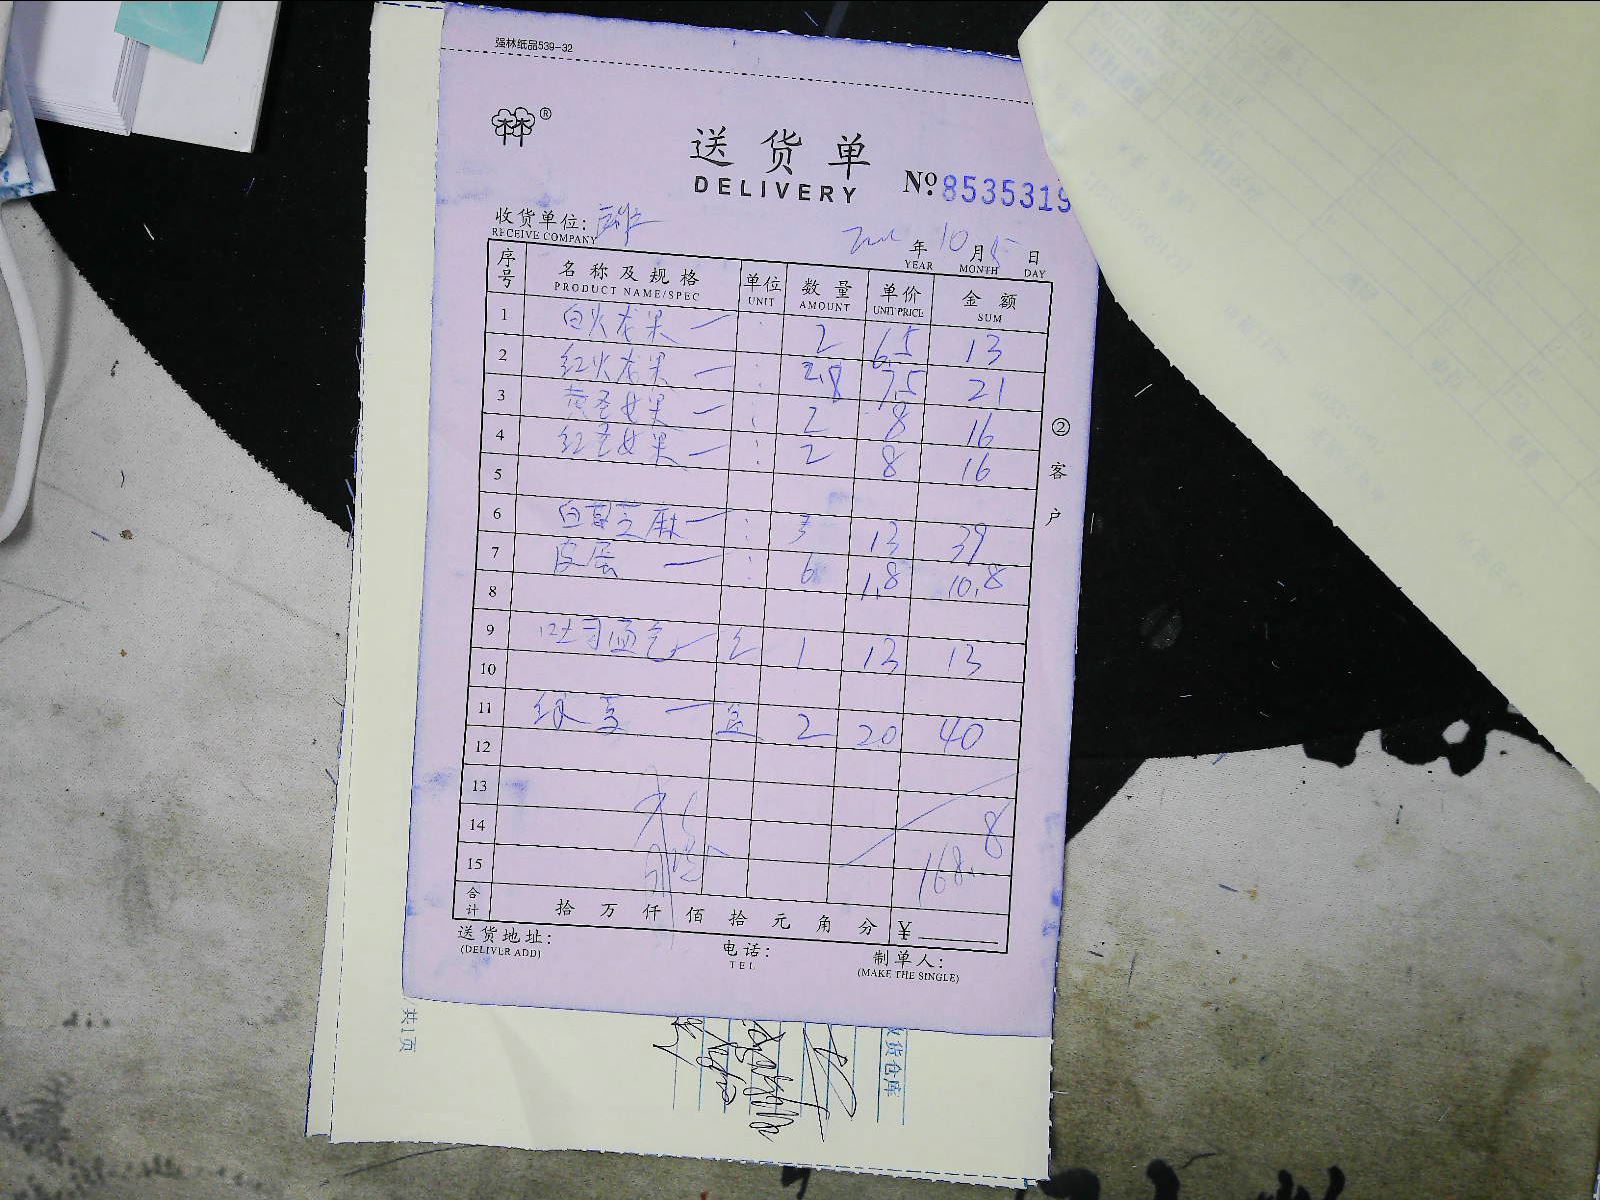 强林纸品539-32
林林®
送货单
DELIVERY
№8535319
收货单位:
RECEIVE COMPANY
年 10 月 5 日
YEAR MONTH DAY
序号 名称及规格 单位 数量 单价 金额
PRODUCT NAME/SPEC UNIT AMOUNT UNIT PRICE SUM
1 白火龙果 — : 2 6.5 13
2 红火龙果 — : 2.8 7.5 21
3 黄圣女果 — : 2 8 16
4 红圣女果 — : 2 8 16
5
6 白芝麻 — : 3 13 39
7 皮蛋 — : 6 1.8 10.8
8
9 吐司面包 1 13 13
10
11 — 盒 2 20 40
12
13
14
15 168.8
合计 拾 万 仟 佰 拾 元 角 分 ¥
②客户
送货地址: 电话: 制单人:
(DELIVER ADD) TEL (MAKE THE SINGLE)
共1页
收货仓库